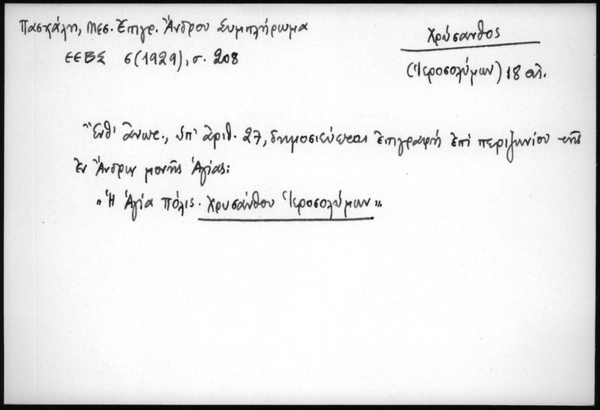 Πασχάλη, Μεσ. Ἐπιγρ. Ἄνδρου Συμπλήρωμα
ΕΕΒΣ 6(1929), σ. 208
Χρύσανθος
(Ἱεροσολύμων) 18 αἰ.
Ἔνθ' ἄνωτ., ὑπ' ἀριθ. 27, δημοσιεύεται ἐπιγραφή ἐπί περιζωνίου τῆς
ἐν Ἄνδρῳ μονῆς Ἁγίας:
"Ἡ Ἁγία πόλις. Χρυσάνθου Ἱεροσολύμων"